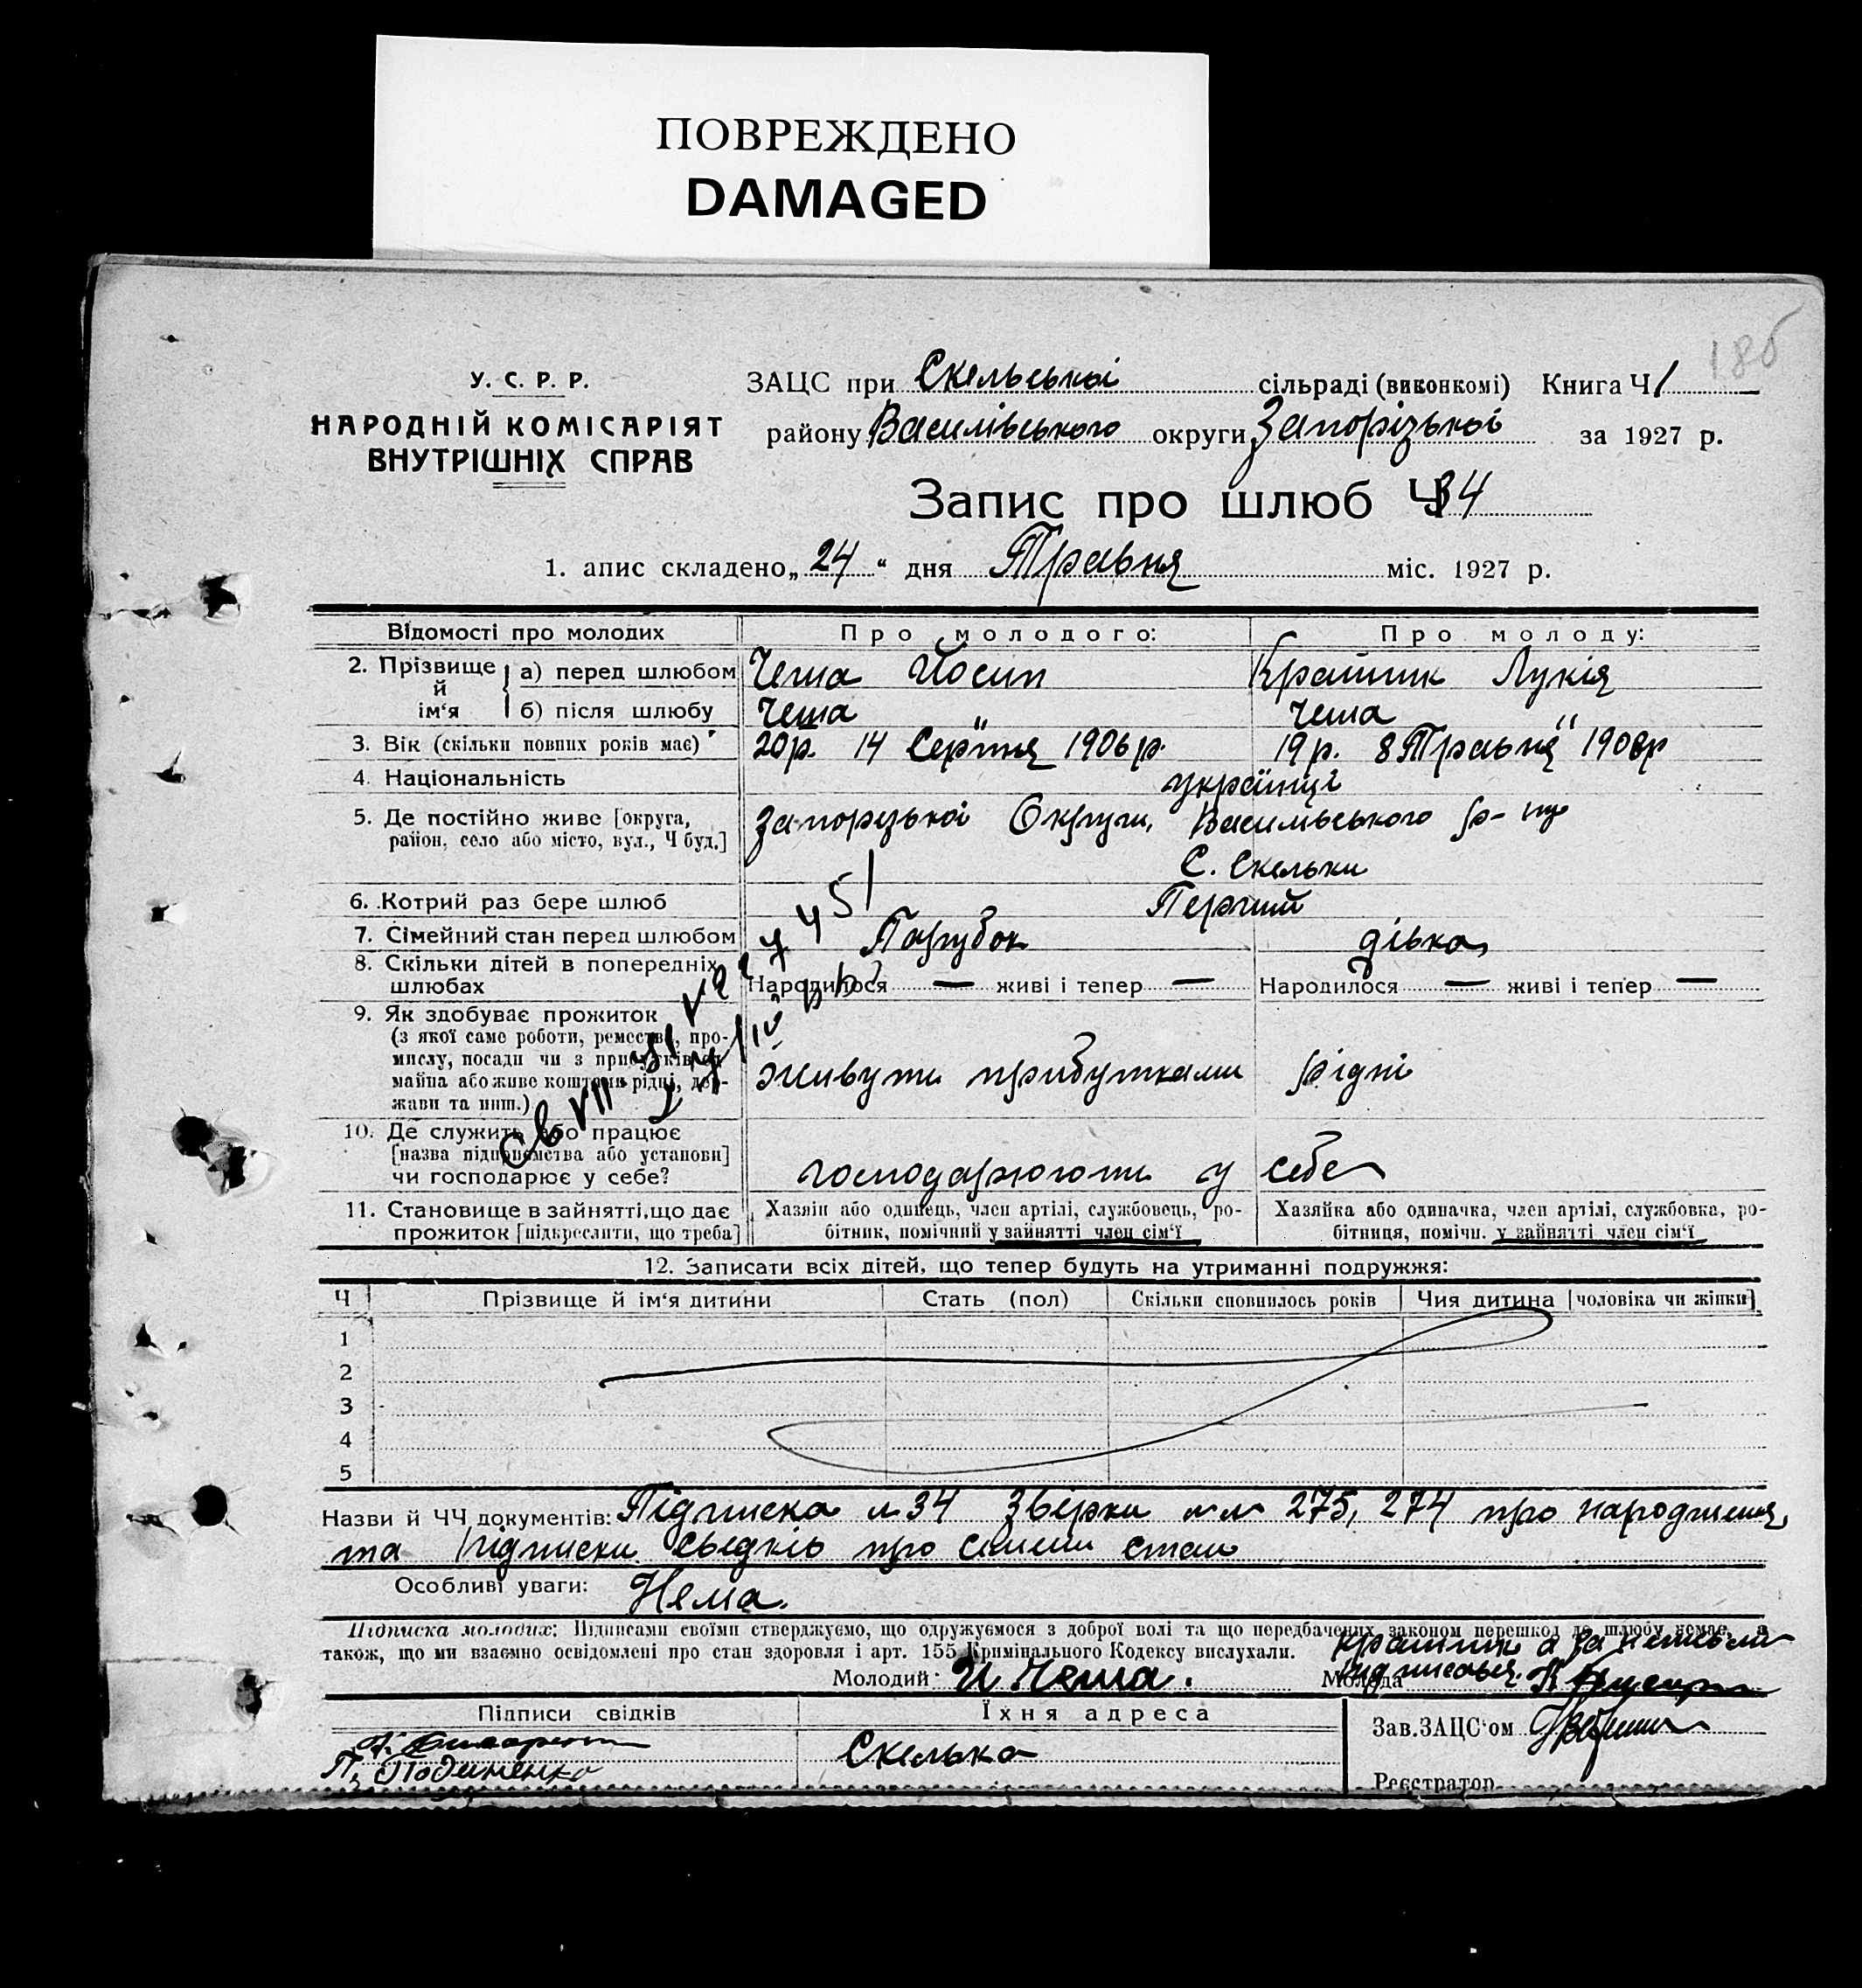 ПОВРЕЖДЕНО
DAMAGED
186
У. С. Р. Р.
НАРОДНІЙ КОМІСАРІЯТ
ВНУТРІШНІХ СПРАВ
ЗАЦС при Скельської сільраді (виконкомі) Книга Ч 1
району Василівського округи Запорізької за 1927 р.
Запис про шлюб Ч 34
1. апис складено „ 24 “ дня Травня міс. 1927 р.
Відомості про молодих Про молодого: Про молоду:
2. Прізвище й ім‘я а) перед шлюбом Чеша Йосип Крашпик Лукія
б) після шлюбу Чеша Чеша
3. Вік (скільки повних років має) 20 р. 14 Серпня 1906 р. 19 р. 8 Травня 1908 р
4. Національність українці
5. Де постійно живе [округа,
район, село або місто, вул., Ч буд.]
Запорізької Округи, Василівського р-ну
С. Скельки
6. Котрий раз бере шлюб Перший
7. Сімейний стан перед шлюбом Парубок дівка
8. Скільки дітей в попередніх
шлюбах
Народилося — живі і тепер — Народилося — живі і тепер —
9. Як здобуває прожиток
(з якої саме роботи, ремества, про-
мислу, посади чи з прибутків од
майна або живе коштами рідні, дер-
жави та инш.)
живуть прибутками рідні
10. Де служить або працює
[назва підприємства або установи]
чи господарює у себе?
господарюють у себе
11. Становище в зайнятті, що дає
прожиток [підкреслити, що треба]
Хазяїн або одинець, член артілі, службовець, ро-
бітник, помічний у зайнятті член сім‘ї
Хазяйка або одиначка, член артілі, службовка, ро-
бітниця, помічн. у зайнятті член сім‘ї
12. Записати всіх дітей, що тепер будуть на утриманні подружжя:
Ч Прізвище й ім‘я дитини Стать (пол) Скільки сповнилось років Чия дитина [чоловіка чи жінки]
1
2
3
4
5
Назви й ЧЧ документів: Підписка № 34 Звірки №№ 275, 274 про народження,
та підписки свідків про стан
Особливі уваги: Нема.
Підписка молодих: Підписами своїми стверджуємо, що одружуємося з доброї волі та що передбачених законом перешкод до шлюбу немає, а
також, що ми взаємно освідомлені про стан здоровля і арт. 155 Кримінального Кодексу вислухали.
Молодий И. Чеша. Молода
Підписи свідків Їхня адреса
Скелька
Зав. ЗАЦС‘ом
Реєстратор